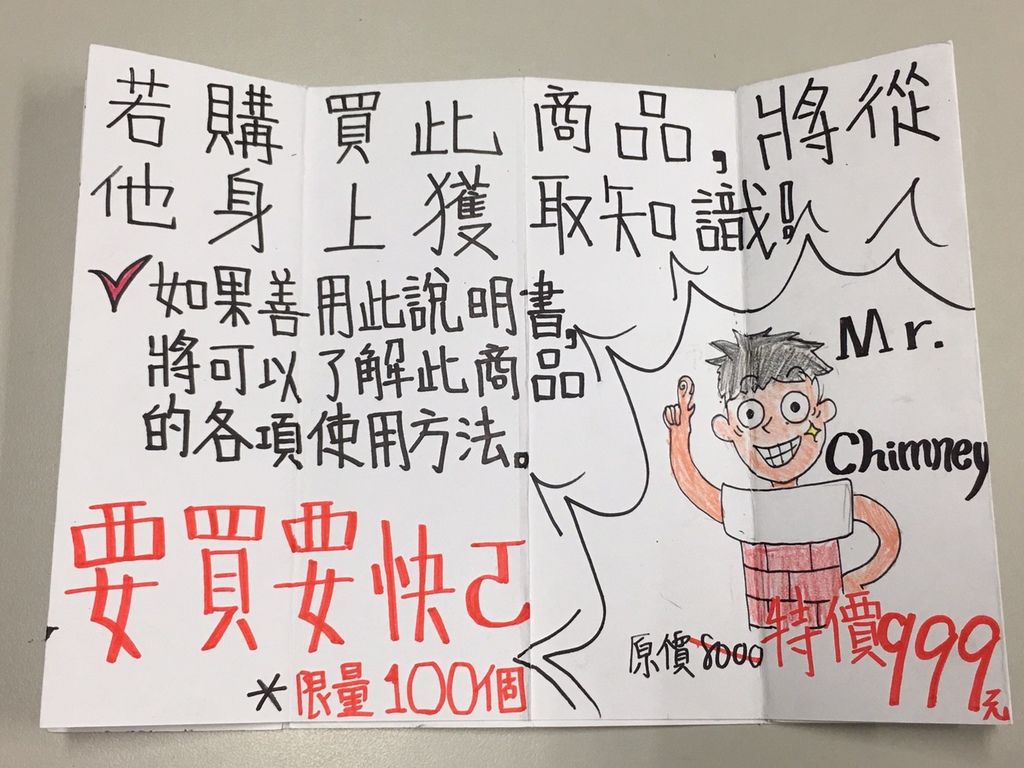 若購買此商品,將從
他身上獲取知識!
如果善用此說明書,
將可以了解此商品
的各項使用方法。
要買要快ㄛ
*限量100個
Mr.
Chimney
原價8000
特價999元